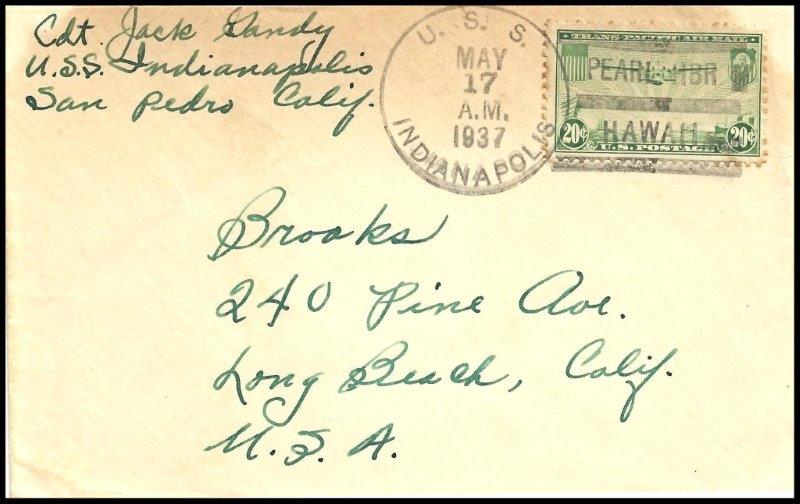 Cdt. Jack Gandy
U.S.S. Indianapolis
San Pedro Calif.
U. S. S.
MAY
17
A.M.
1937
INDIANAPOLIS
TRANS-PACIFIC AIR MAIL
PEARL HBR
HAWAII
20¢ 20¢
U.S. POSTAGE
Brooks
240 Pine Ave.
Long Beach, Calif.
U.S.A.